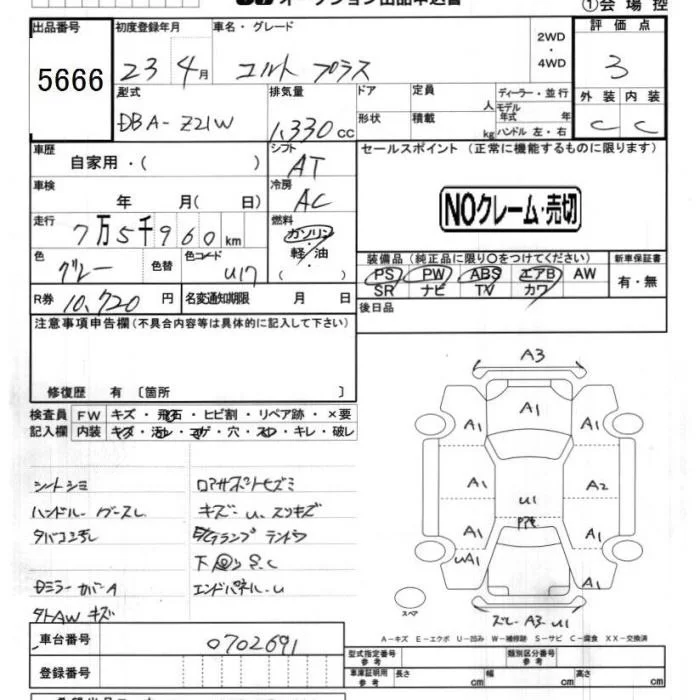 オークション出品申込書
①会場控
出品番号
5666
初度登録年月
23 4月
車名・グレード
コルト プラス
2WD
・
4WD
評価点
3
型式
DBA-Z21W
排気量
1,330cc
ドア
定員
人
形状
積載
kg
ディーラー・並行
モデル
年式
年
ハンドル 左・右
外装
内装
C
C
車歴
自家用・( )
シフト
AT
セールスポイント (正常に機能するものに限ります)
NOクレーム・売切
車検
年 月( 日)
冷房
AC
走行
7万5千960km
燃料
ガソリン
・
軽油
( )
色
グレー
色替
色コード
U17
装備品 (純正品に限り○をつけてください)
PS PW ABS エアB AW
SR ナビ TV カワ
新車保証書
有・無
R券
10,720円
名変通知期限 月 日
後日品
注意事項申告欄 (不具合内容等は具体的に記入して下さい)
修復歴 有 〔箇所 〕
検査員
記入欄
FW
キズ・飛石・ヒビ割・リペア跡・×要
内装
キズ・汚レ・コゲ・穴・スレ・キレ・破レ
シートシミ
ハンドル
ロアサポートキズミ
キズ・U、スリキズ
下回りS.C
エンドパネル-U
DミラーカバーA
タトAWキズ
A3
A1
A1
A1
A1
A2
U1
A1
A1
UA1
A1
スペア
ズレ-A3-U1
A-キズ E-エクボ U-凹み W-補修跡 S-サビ C-腐食 XX-交換済
車台番号
0702691
登録番号
型式指定番号
参考
類別区分番号
参考
車庫証明用
参考
長さ
cm
幅
cm
高さ
cm